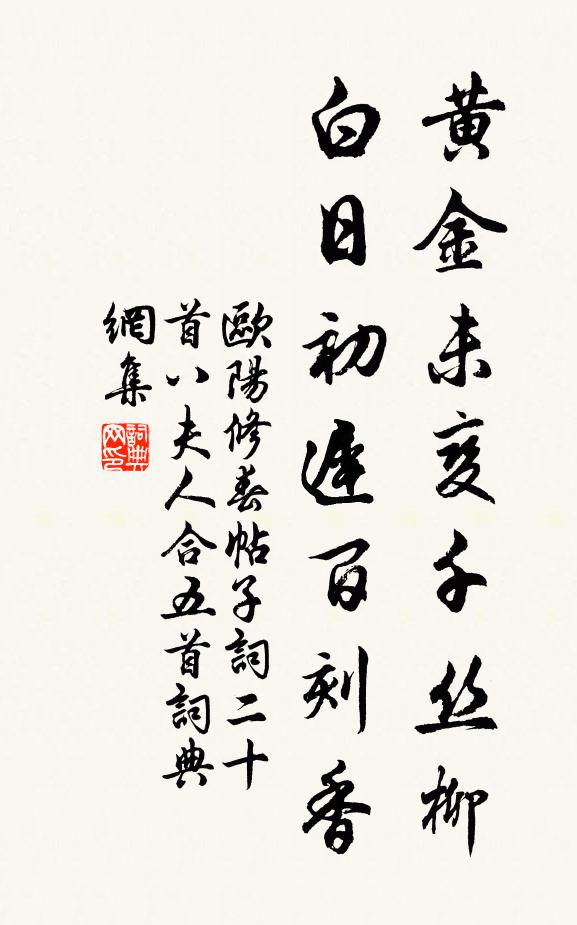 黄金未变千丝柳
白日初遲百刻香
歐陽修春帖子詞二十
首八夫人合五首詞典
網集
詞典
网印